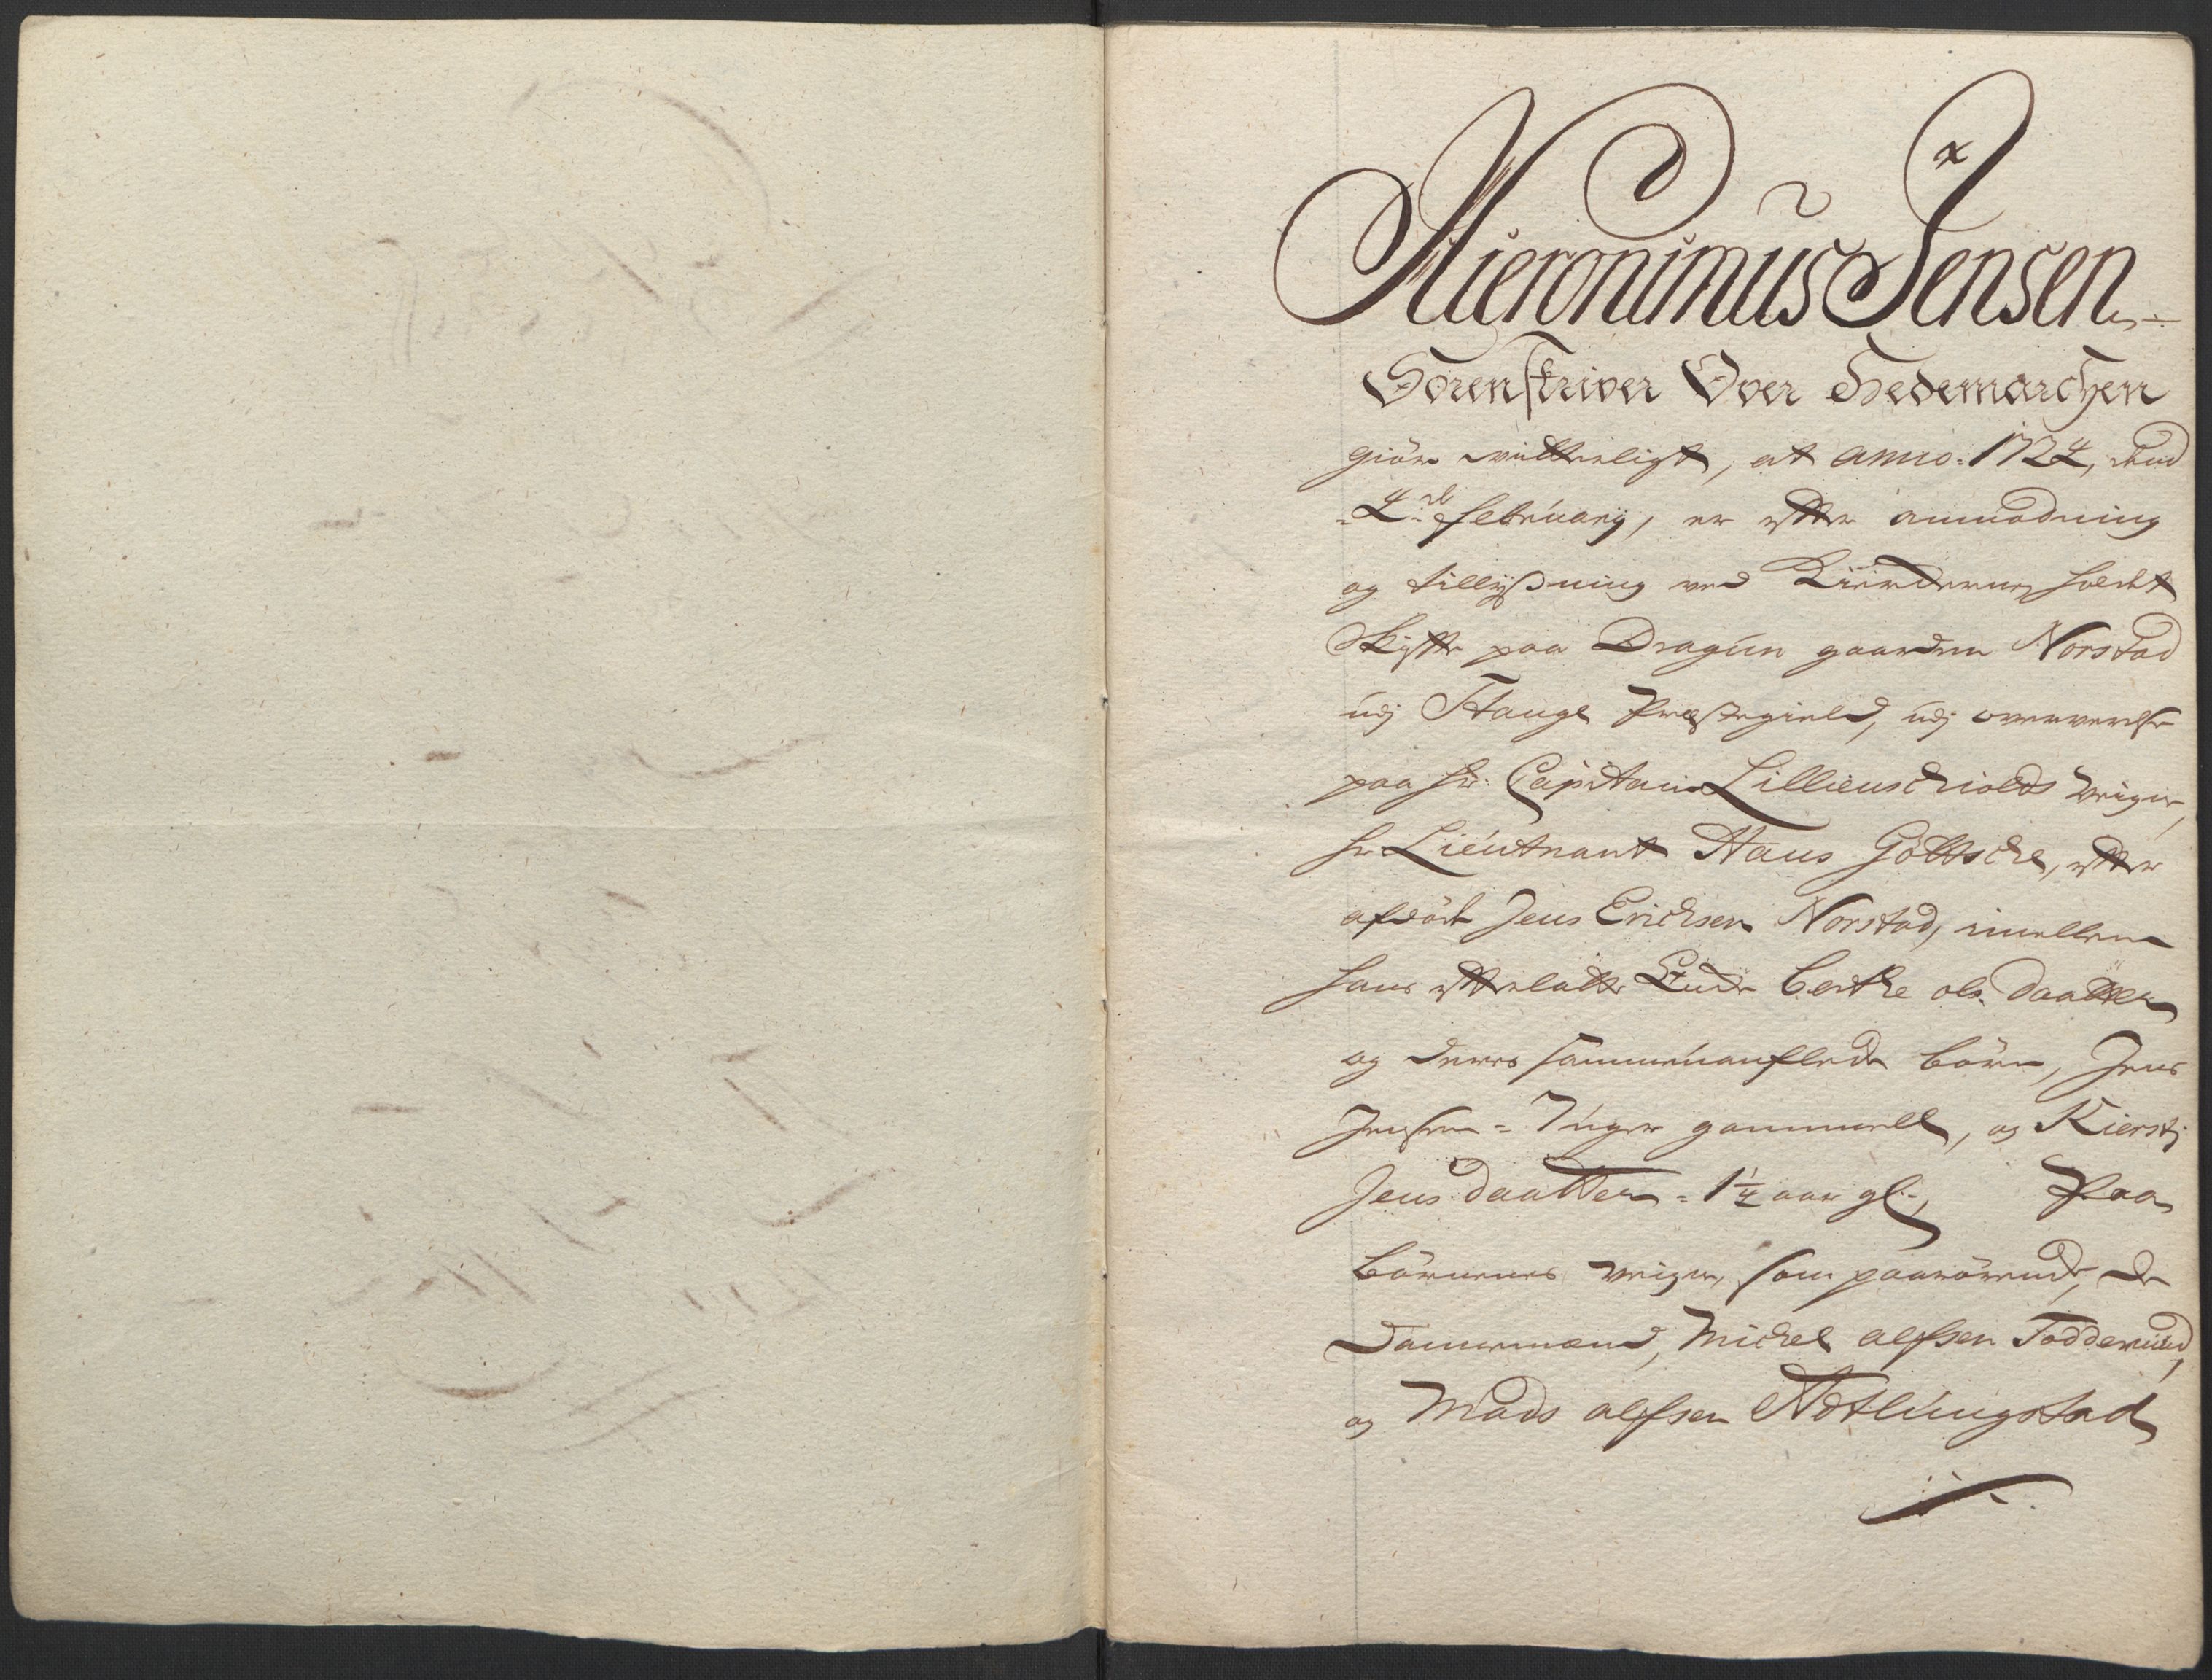 Hieronimus Jensen
Sorenskriver Over Hedemarchen
giör vitterligt, at anno: 1724, dend
4de februarij, er efter anmodning
og tillyßning ved Kierkerne holdt
Skiffte paa Dragun gaarden Norstad
udj Stange Præstegield, udj overværelse
paa hr: Capitain Lillienschiolds Veigne,
hr Lieutnant Hans Göttsche, efter
afdöde Jens Erichsen Norstad, imellem
hans efterlatte Encke berthe ols daatter
og deres sammenauflede börn, Jens
Jensen = Uger gammell, og Kierstj
Jens daatter = 1¼ aar gl:, Paa
börnenes veigne, som paarörende, de
Dannemænd, Michel alfsen Todderud,
og Mads alfsen Hotlungstad